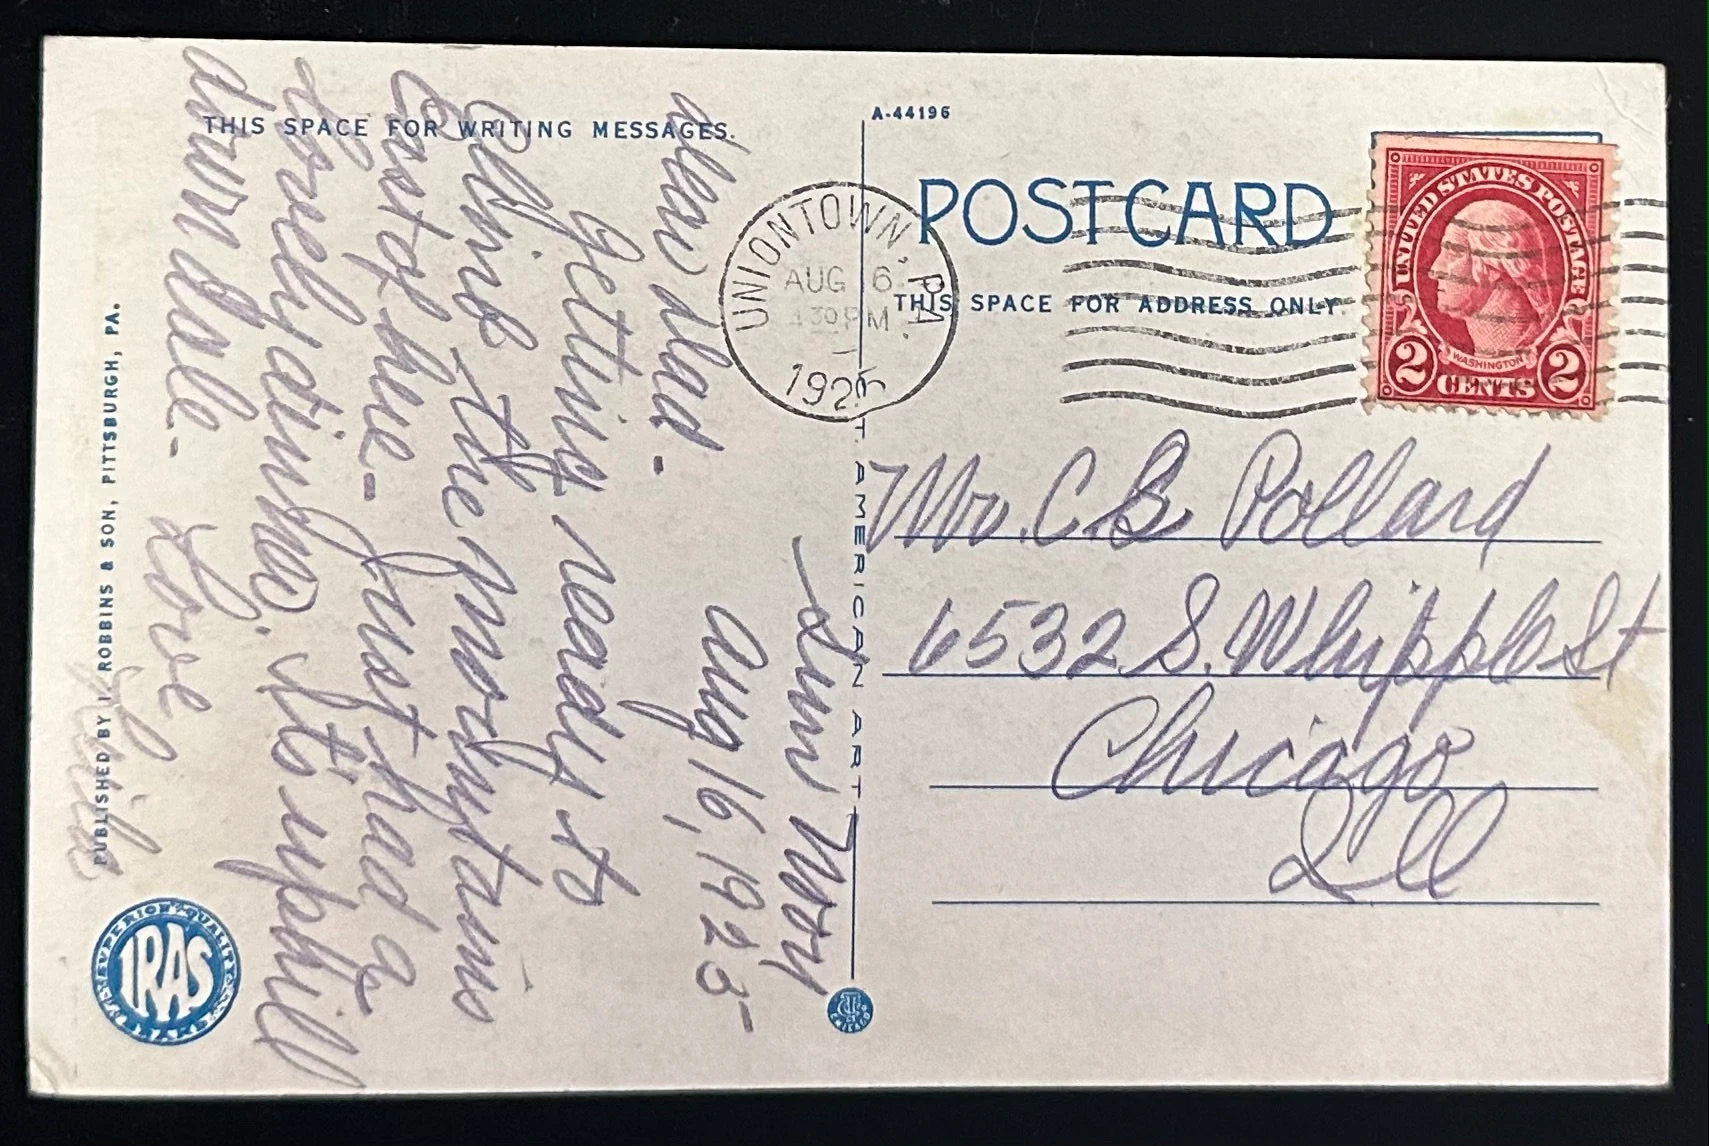 THIS SPACE FOR WRITING MESSAGES.
A-44196
POSTCARD
THIS SPACE FOR ADDRESS ONLY.
UNIONTOWN, PA.
AUG 6
4 30 PM
1925
UNITED STATES POSTAGE
WASHINGTON
2 CENTS 2
Sun Mory
Aug 16, 1925
Dear Dad-
Getting ready to
Climb the mountains
East of here- Just had a
Lovely dinner. It's uphill
down dale-
Love
Mr. C. B. Pollard
6532 S. Whipple St
Chicago
Ill
T. AMERICAN ART
C.T. CHICAGO
PUBLISHED BY I. ROBBINS & SON, PITTSBURGH, PA.
SUPERIOR QUALITY
IRAS